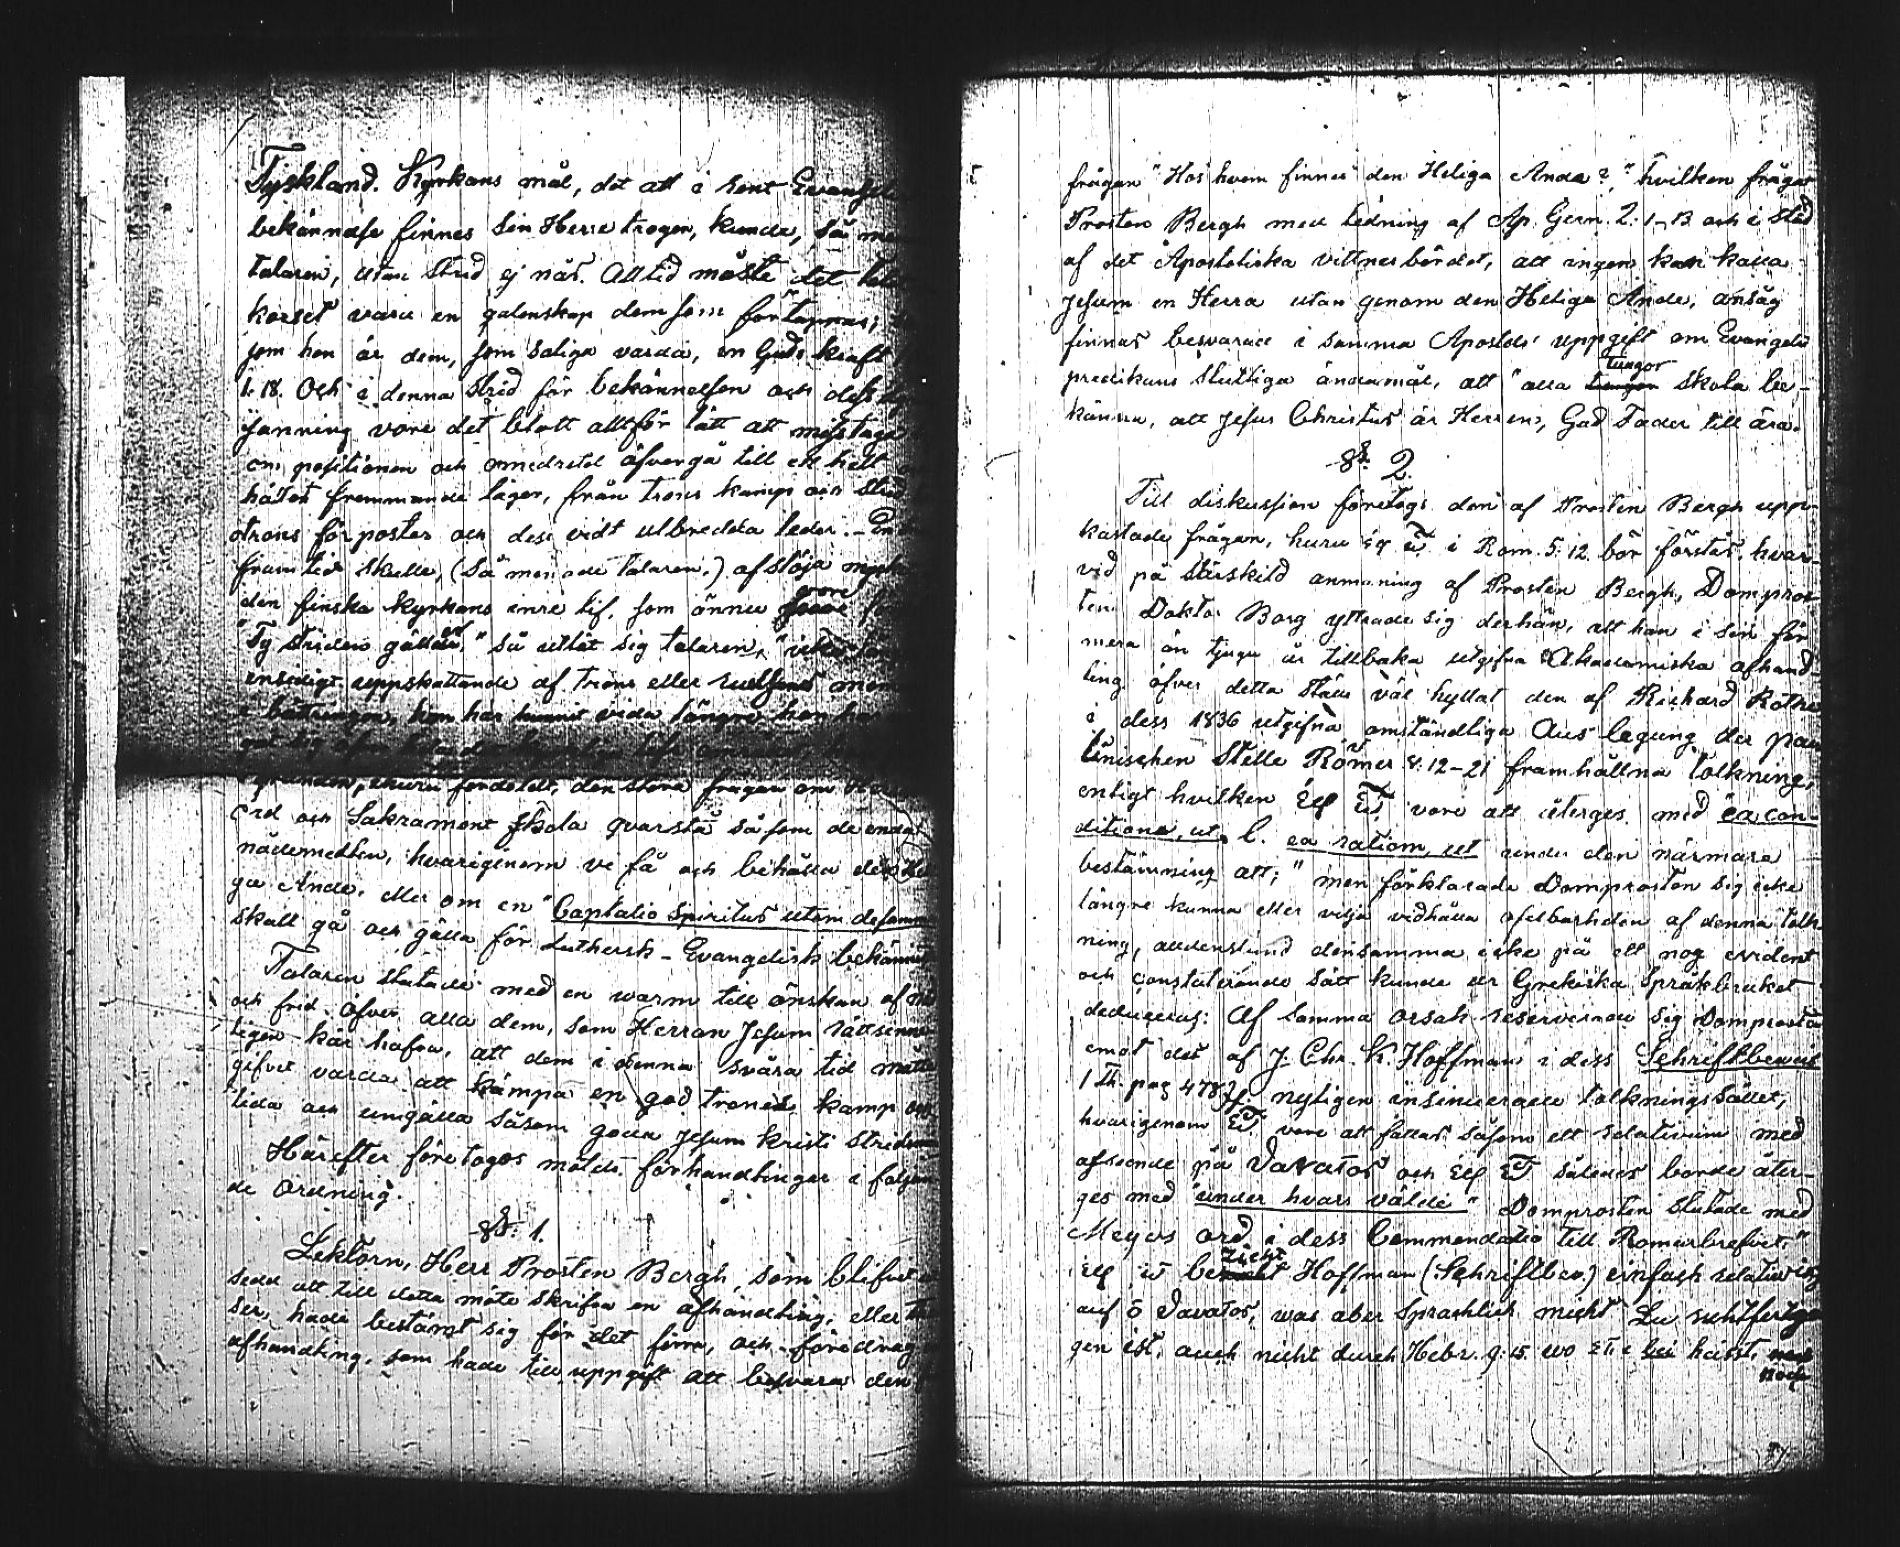 Tyskland. Kyrkans mål, det att i rent Evangel
bekännelse finnes sin Herre trogen, kunde, så me
talaren, utan strid ej nås. Alltid måste det
korset vara en galenskap dem som förtappas,
som hon är dem, som saliga varda, en Guds kraft
1: 18. Och i denna strid för bekännelsen och dess
vore det blott alltför lätt att misstaga
om positionen och omedvetet öfvergå till ett helt
håttet fremmande läger, från trons kamp och stri
otrons förposter och dess vidt utbredda leder. - En
framtid skulle, (så menade talaren.) afslöja
den finska kyrkans inre lif, som ännu vore
"Ty striden gäller," så utlät sig talaren,
ensidigt uppskattande af trons eller
i bättringen, hon har vida längre hon har
den stora frågan om
ord och Sakrament skola qvarstå såsom de enda
nådemedlen, hvarigenom vi få och behålla den He
ga Ande, eller om en "Captatio Spiritus utom desamm
skall gå och gälla för Luthersk-Evangelisk bekänne
Talaren slutade med en warm till önskan af nå
och frid öfver alla dem, som Herran Jesum rättsinne
ligen kär hafva, att dem i denna svåra tid måtte
gifvet varda att kämpa en god tronens kamp och
lida och umgälla såsom goda Jesum Kristi Stridsm
Härefter företogos mötets förhandlingar i följan
de ordning.
§ 1.
Lektorn, Herr Prosten Bergh, som blifvit
sedd att till detta möte skrifva en afhandling, eller
ser, hade bestämt sig för det förra, och föredrog
afhandling, som hade till uppgift att besvara den
frågan "Hos hvem finnes den Heliga Anda?" hvilken frågat
Prosten Bergh med ledning af Ap. Gern. 2: 1-13 och i stöd
af det Apostoliska vittnesbördet, att ingen kan kalla
Jesum en Herra utan genom den Heliga Ande, ansåg
finnas besvarad i samma Apostels uppgift om Evangelii
predikans slutliga ändamål, att "alla tungor skola be-
känna, att Jesus Christus är Herren, Gud Fader till ära.
§ 2.
Till diskussion företogs den af Prosten Bergh upp-
kastade frågan, huru ἐφ ᾧ i Rom. 5: 12. bör förstås, hvar-
vid på särskild anmaning af Prosten Bergh, Dompros-
ten Doktor Borg yttrade sig derhän, att han i sin för
mera än tjugu år tillbaka utgifna Akademiska afhand-
ling öfver detta ställe väl hyllat den af Richard Rothe
i dess 1836 utgifna omständliga Auslegung der pau
linischen Stelle Römer 5: 12-21 framhållna tolkning,
enligt hvilken ἐφ ᾧ, vore att återges med ea con-
ditione, ut l. ea ratiom, ut under den närmare
bestämning att; " men förklarade Domprosten sig icke
längre kunna eller vilja vidhålla ofelbarheden af denna tolk-
ning, alldenstund densamma icke på ett nog evident
och constaterande sätt kunde ur Grekiska Språkbruket
deduceras: Af samma orsak reserverade sig Domprosten
emot det af J. Chr. K. Hoffman i dess Schriftbeweis
1 Th. pag 478 ff nyligen insinuerade tolkningssättet,
hvarigenom ᾧ vore att fattas såsom ett relativum med
afseende på θανατος och ἐφ ᾧ således borde åter-
ges med "under hvars välde" Domprosten slutade med
Meyers ord i dess Commendatio till Romarbrefvet, "
ἐφ ᾧ bezieht Hoffman (Schriftbew.) einfach relativisch
auf ὁ θανατος, was aber Sprachlich nicht zu rechtfertig
gen ist, auch nicht durch Hebr. 9: 15. wo ἐπι bei heisst,
noch